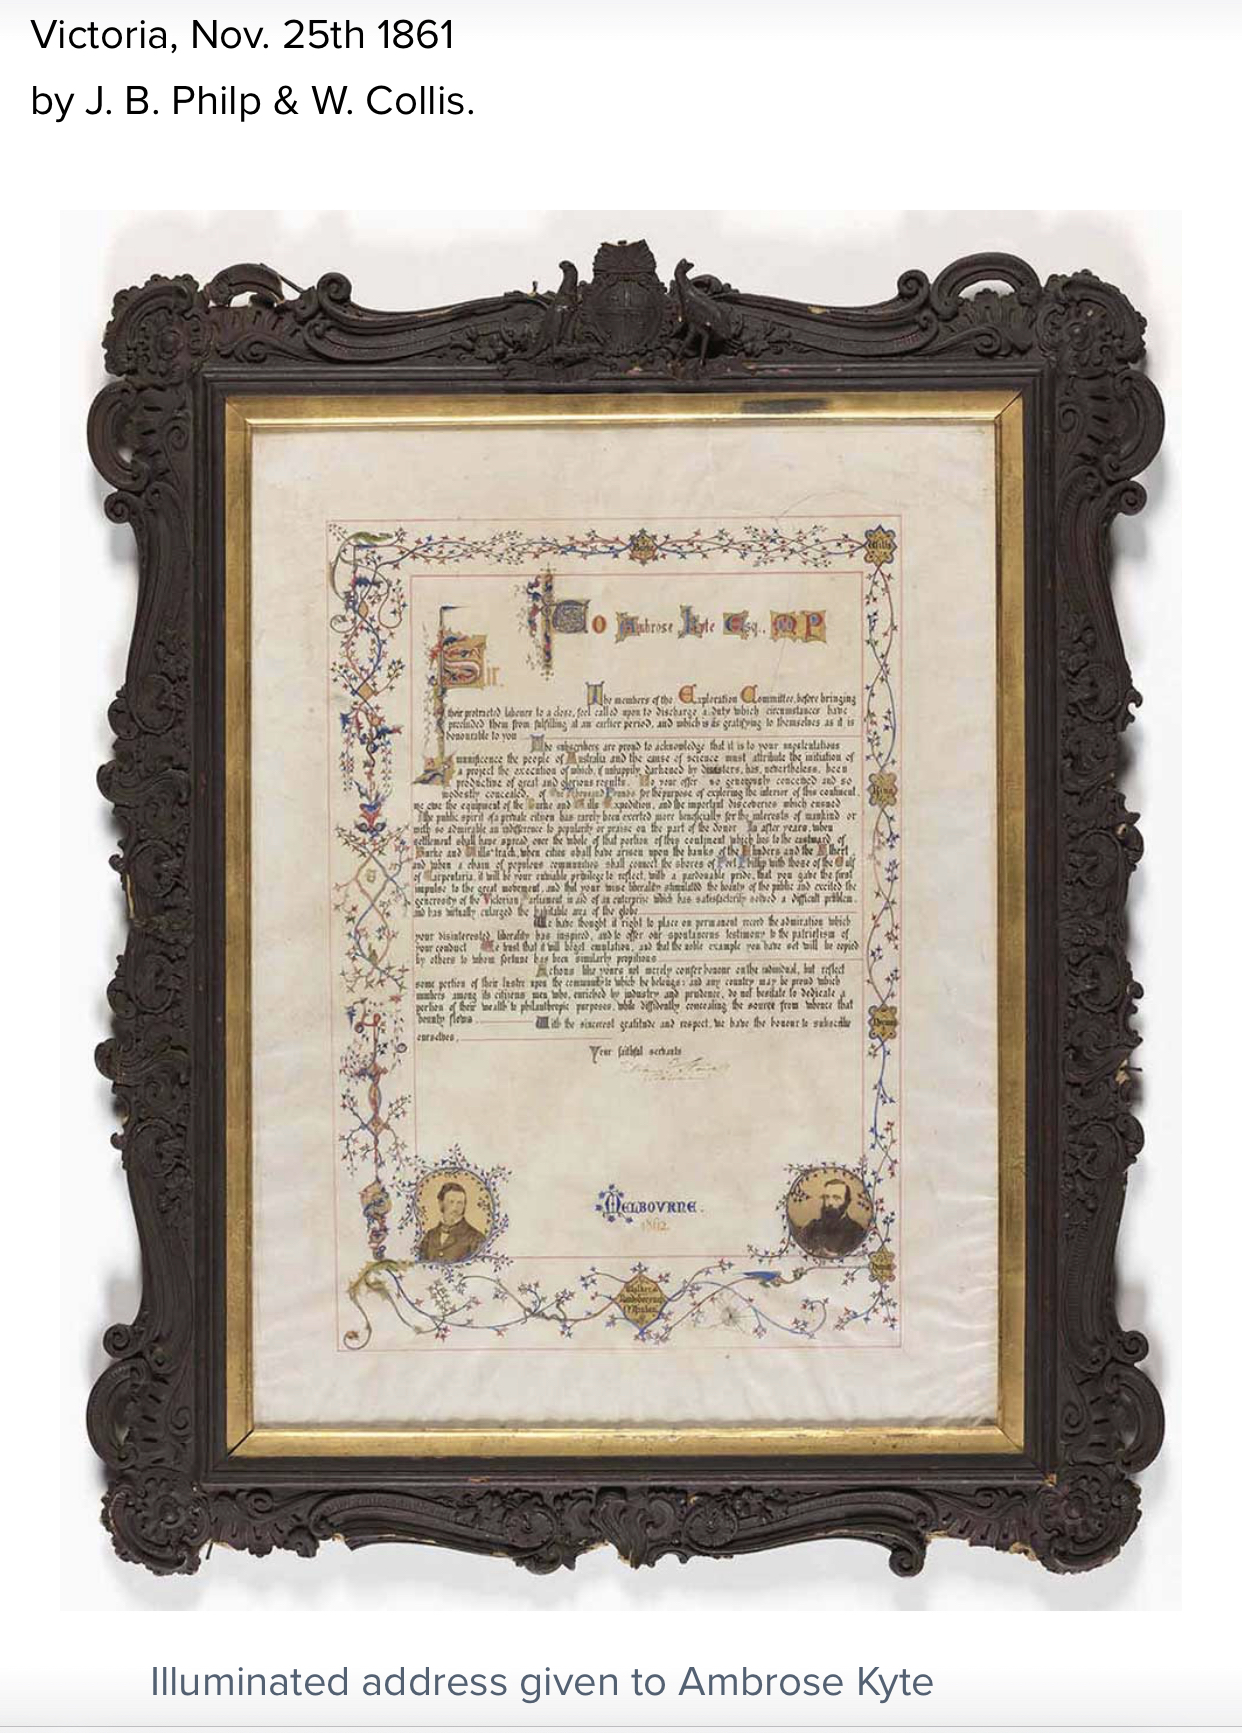 Victoria, Nov. 25th 1861
by J. B. Philp & W. Collis.
Wills
To Ambrose Kyte Esq., M P
Sir.
The members of the Exploration Committee, before bringing
their protracted labours to a close, feel called upon to discharge a duty which circumstances have
precluded them from fulfilling at an earlier period, and which is as gratifying to themselves as it is
honourable to you
The subscribers are proud to acknowledge that it is to your unostentatious
munificence the people of Australia and the cause of science must attribute the initiation of
a project the execution of which, if unhappily darkened by disasters, has, nevertheless, been
productive of great and glorious results. To your offer so generously conceived and so
modestly concealed, of One Thousand Pounds for the purpose of exploring the interior of this continent,
we owe the equipment of the Burke and Wills Expedition, and the important discoveries which ensued
The public spirit of a private citizen has rarely been exerted more beneficially for the interests of mankind or
with so admirable an indifference to popularity or praise on the part of the donor In after years, when
settlement shall have spread over the whole of that portion of this continent which lies to the eastward of
Burke and Wills' track, when cities shall have arisen upon the banks of the Flinders and the Albert
and when a chain of populous communities shall connect the shores of Port Phillip with those of the Gulf
of Carpentaria, it will be your enviable privilege to reflect, with a pardonable pride, that you gave the first
impulse to the great movement, and that your wise liberality stimulated the bounty of the public and excited the
generosity of the Victorian Parliament in aid of an enterprise which has satisfactorily solved a difficult problem,
and has virtually enlarged the habitable area of the globe
We have thought it right to place on permanent record the admiration which
your disinterested liberality has inspired, and to offer our spontaneous testimony to the patriotism of
your conduct We trust that it will beget emulation, and that the noble example you have set will be copied
by others to whom fortune has been similarly propitious
Actions like yours not merely confer honour on the individual, but reflect
some portion of their lustre upon the community to which he belongs: and any country may be proud which
numbers among its citizens men who, enriched by industry and prudence, do not hesitate to dedicate a
portion of their wealth to philanthropic purposes, while diffidently concealing the source from whence that
bounty flows
With the sincerest gratitude and respect, we have the honour to subscribe
ourselves,
Your faithful servants
King
MELBOVRNE.
1862.
Walker
Landsborough
Illuminated address given to Ambrose Kyte